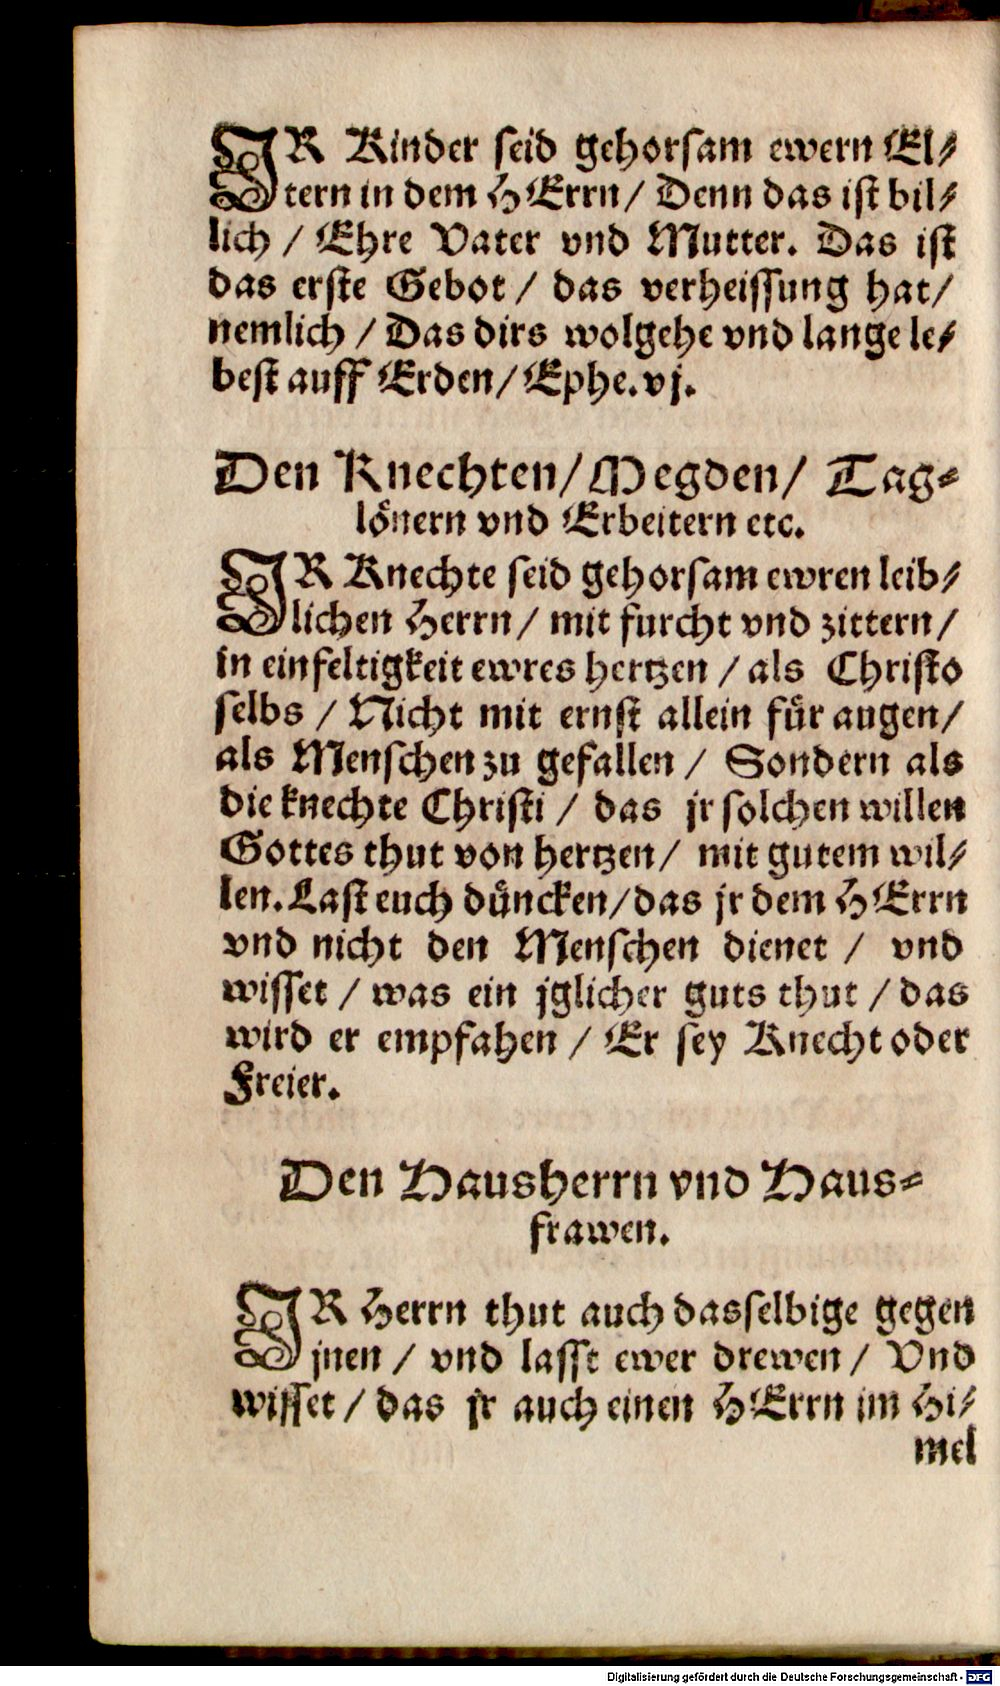 JR Kinder seid gehorsam ewern El-
tern in dem HErrn / Denn das ist bil-
lich / Ehre Vater vnd Mutter. Das ist
das erste Gebot / das verheissung hat /
nemlich / Das dirs wolgehe vnd lange le-
best auff Erden / Ephe. vj.
Den Knechten / Megden / Tag-
lönern vnd Erbeitern etc.
JR Knechte seid gehorsam ewren leib-
lichen Herrn / mit furcht vnd zittern /
in einfeltigkeit ewres hertzen / als Christo
selbs / Nicht mit ernst allein für augen /
als Menschen zu gefallen / Sondern als
die knechte Christi / das jr solchen willen
Gottes thut von hertzen / mit gutem wil-
len. Last euch düncken / das jr dem HErrn
vnd nicht den Menschen dienet / vnd
wisset / was ein jglicher guts thut / das
wird er empfahen / Er sey Knecht oder
Freier.
Den Hausherrn vnd Haus-
frawen.
JR Herrn thut auch dasselbige gegen
jnen / vnd lasst ewer drewen / Vnd
wisset / das jr auch einen HErrn im Hi-
mel
Digitalisierung gefördert durch die Deutsche Forschungsgemeinschaft - DFG